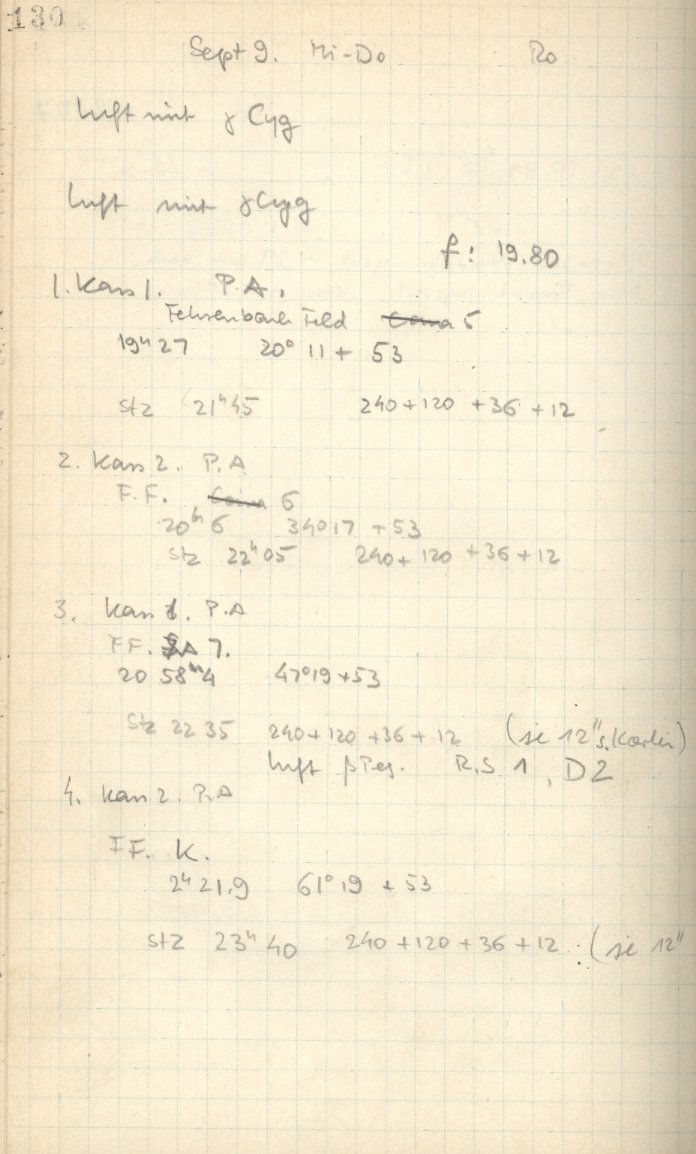 130
Sept 9. Mi-Do Ro
Luft mit γ Cyg
Luft mit γ Cyg
f: 19.80
1. Kass 1. P.A.
Fehrenbach Feld 5
19ʰ27 20° 11 + 53
Stz 21ʰ45 240+120 +36 +12
2. Kass 2. P.A
F.F. 6
20ʰ 6 34°17 +53
Stz 22ʰ05 240+120 +36+12
3. Kass 1. P.A
FF. 7.
20 58ᵐ4 47°19 +53
Stz 22 35 240+120 +36 +12 (je 12" s.
Luft β Peg. R.S 1, D2
4. Kass 2. P.A
FF. K.
2ʰ 21.9 61° 19 + 53
Stz 23ʰ 40 240 +120 +36 +12 (je 12"